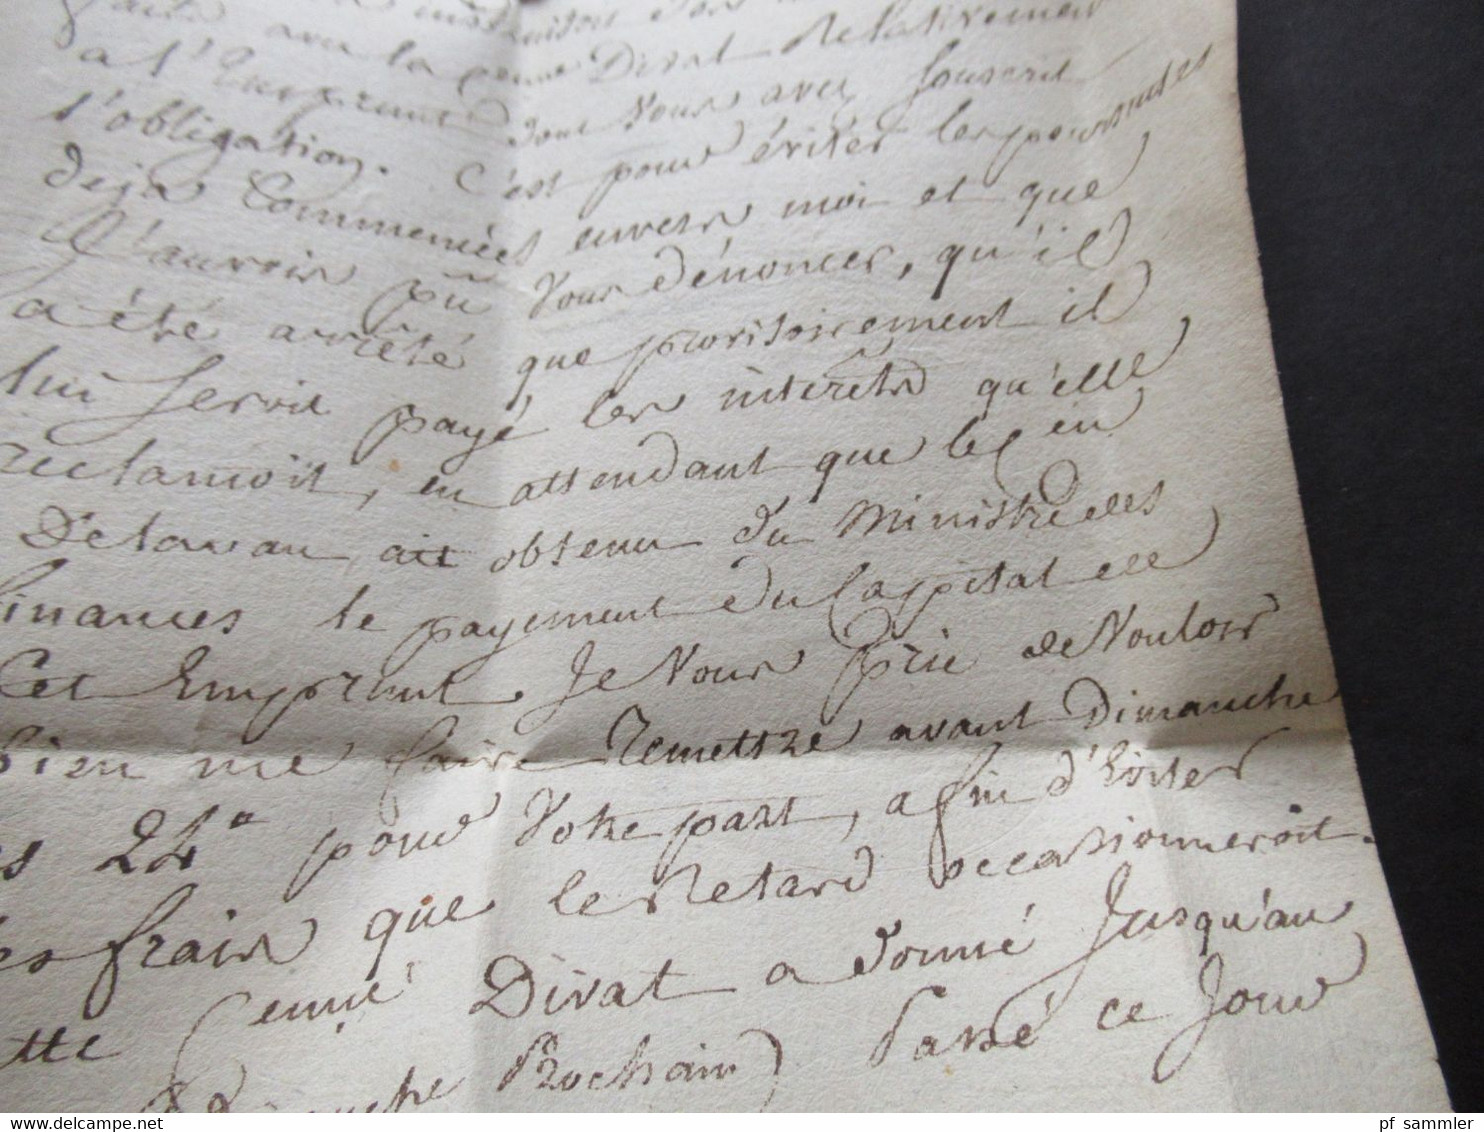 avec la Dirat Relativement
a l'Emprunt dont Vous avez Souscrit
l'obligation. C'est pour éviter les poursuites
deja Commencées envers moi et que
J'aurois pû Vous dénoncer, qu'il
a été arrêté que provisoirement il
lui seroit payé les intérêts qu'elle
reclamoit, en attendant que le en
Delavau ait obtenu du Ministre des
finances le payement du Capital de
Cet Emprunt. Je Vous prie de Vouloir
bien me faire Remettre avant Dimanche
24 pour Votre part, afin d'Eviter
les frais que le Retard occasionneroit.
Cette Dirat a donné Jusqu'au
Dimanche Prochain Passé ce Jour
pf sammler